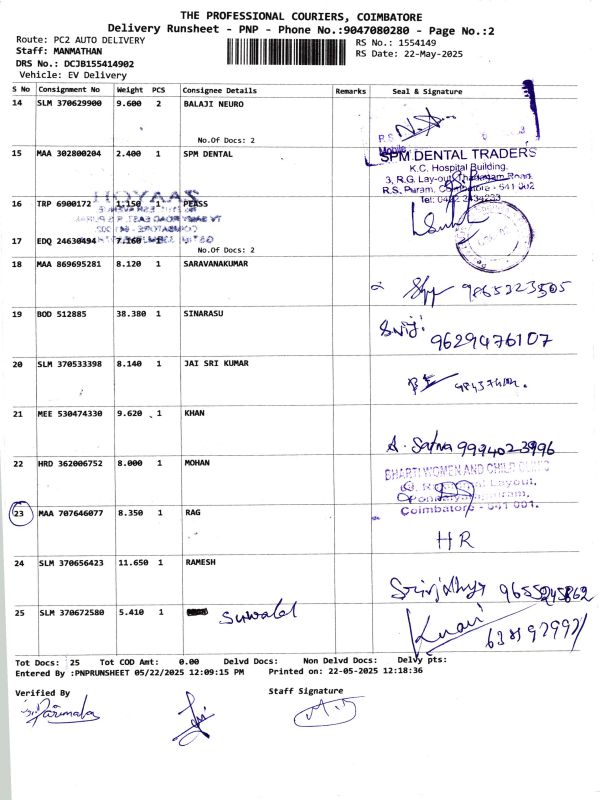 THE PROFESSIONAL COURIERS, COIMBATORE
Delivery Runsheet - PNP - Phone No.:9047080280 - Page No.:2
Route: PC2 AUTO DELIVERY
Staff: MANMATHAN
DRS No.: DCJB155414902
Vehicle: EV Delivery
RS No.: 1554149
RS Date: 22-May-2025
S No Consignment No Weight PCS Consignee Details Remarks Seal & Signature
14 SLM 370629900 9.600 2 BALAJI NEURO
No.Of Docs: 2
15 MAA 302800204 2.400 1 SPM DENTAL
SPM DENTAL TRADERS
K.C. Hospital Building,
3, R.G. Lay-out, Thadagam Road,
R.S. Puram, Coimbatore - 641 002
Tel: 0422 2434233
16 TRP 6900172 1.150 1 PEASS
17 EDQ 24630494 7.160
No.Of Docs: 2
18 MAA 869695281 8.120 1 SARAVANAKUMAR
9865323505
19 BOD 512885 38.380 1 SINARASU
9629476107
20 SLM 370533398 8.140 1 JAI SRI KUMAR
21 MEE 530474330 9.620 1 KHAN
A. Satna 9994023996
22 HRD 362006752 8.000 1 MOHAN
BHARTI WOMEN AND CHILD CLINIC
Layout,
Coimbatore - 641 001.
23 MAA 707646077 8.350 1 RAG
HR
24 SLM 370656423 11.650 1 RAMESH
9655245862
25 SLM 370672580 5.410 1
Tot Docs: 25 Tot COD Amt: 0.00 Delvd Docs: Non Delvd Docs: Delvy pts:
Entered By :PNPRUNSHEET 05/22/2025 12:09:15 PM Printed on: 22-05-2025 12:18:36
Verified By
Staff Signature